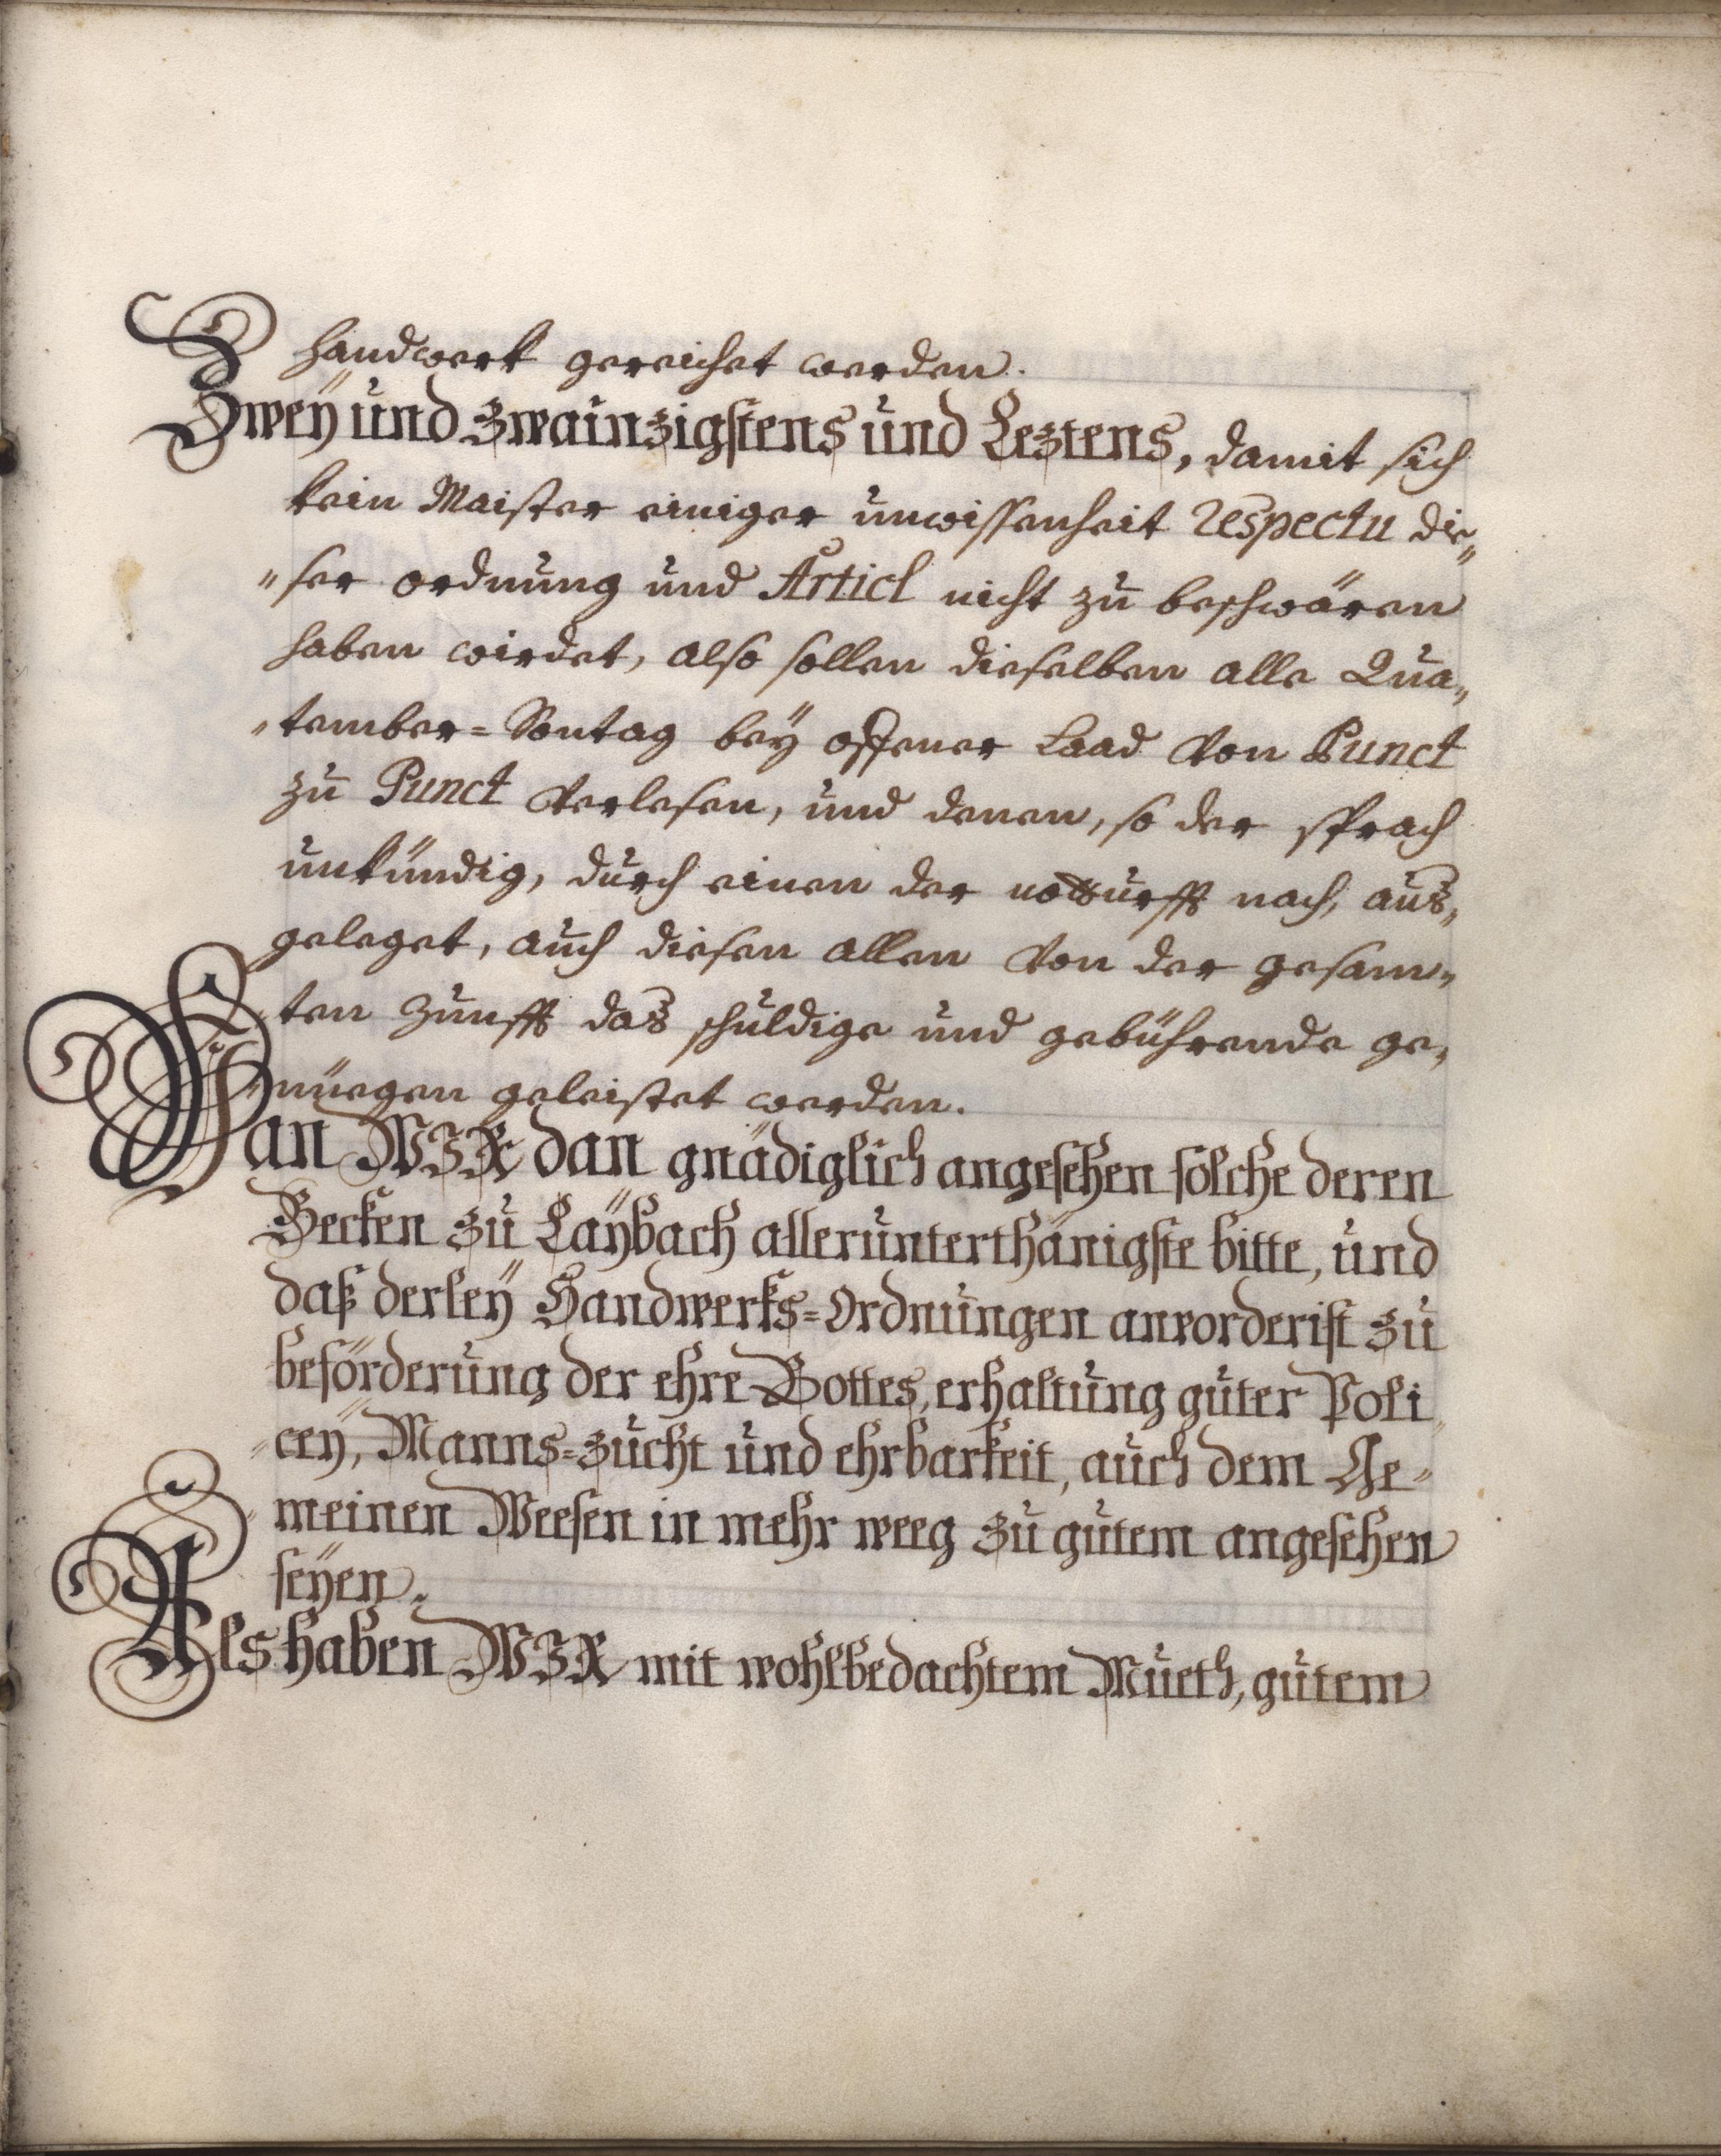 handwerk gereichet werden.
Zweÿ und zwainzigstens und Leztens, damit sich
kein Maister einiger unwissenheit respectu die„
„ser ordnung und Articl nicht zu beschwären
haben wirdet, also sollen dieselben alle Qua„
„tember=Sontag beÿ offener Laad von Punct
zu Punct verlesen, und denen, so der sprach
unkündig, durch einen der notturfft nach, aus„
geleget, auch diesen allen von der gesam„
ten zunfft das schuldige und gebührende ge„
„nüegen geleistet werden.
Wan WIR dan gnädiglich angesehen solche deren
Becken zu Laÿbach allerunterthänigste bitte, und
daß derleÿ Handwerks=Ordnungen anvorderist zu
beförderung der ehre Gottes, erhaltung guter Poli„
„ceÿ, Manns=zucht und ehrbarkeit, auch dem Ge„
„meinen Weesen in mehr weeg zu gutem angesehen
seÿen.
Als haben WIR mit wohlbedachtem Mueth, gutem